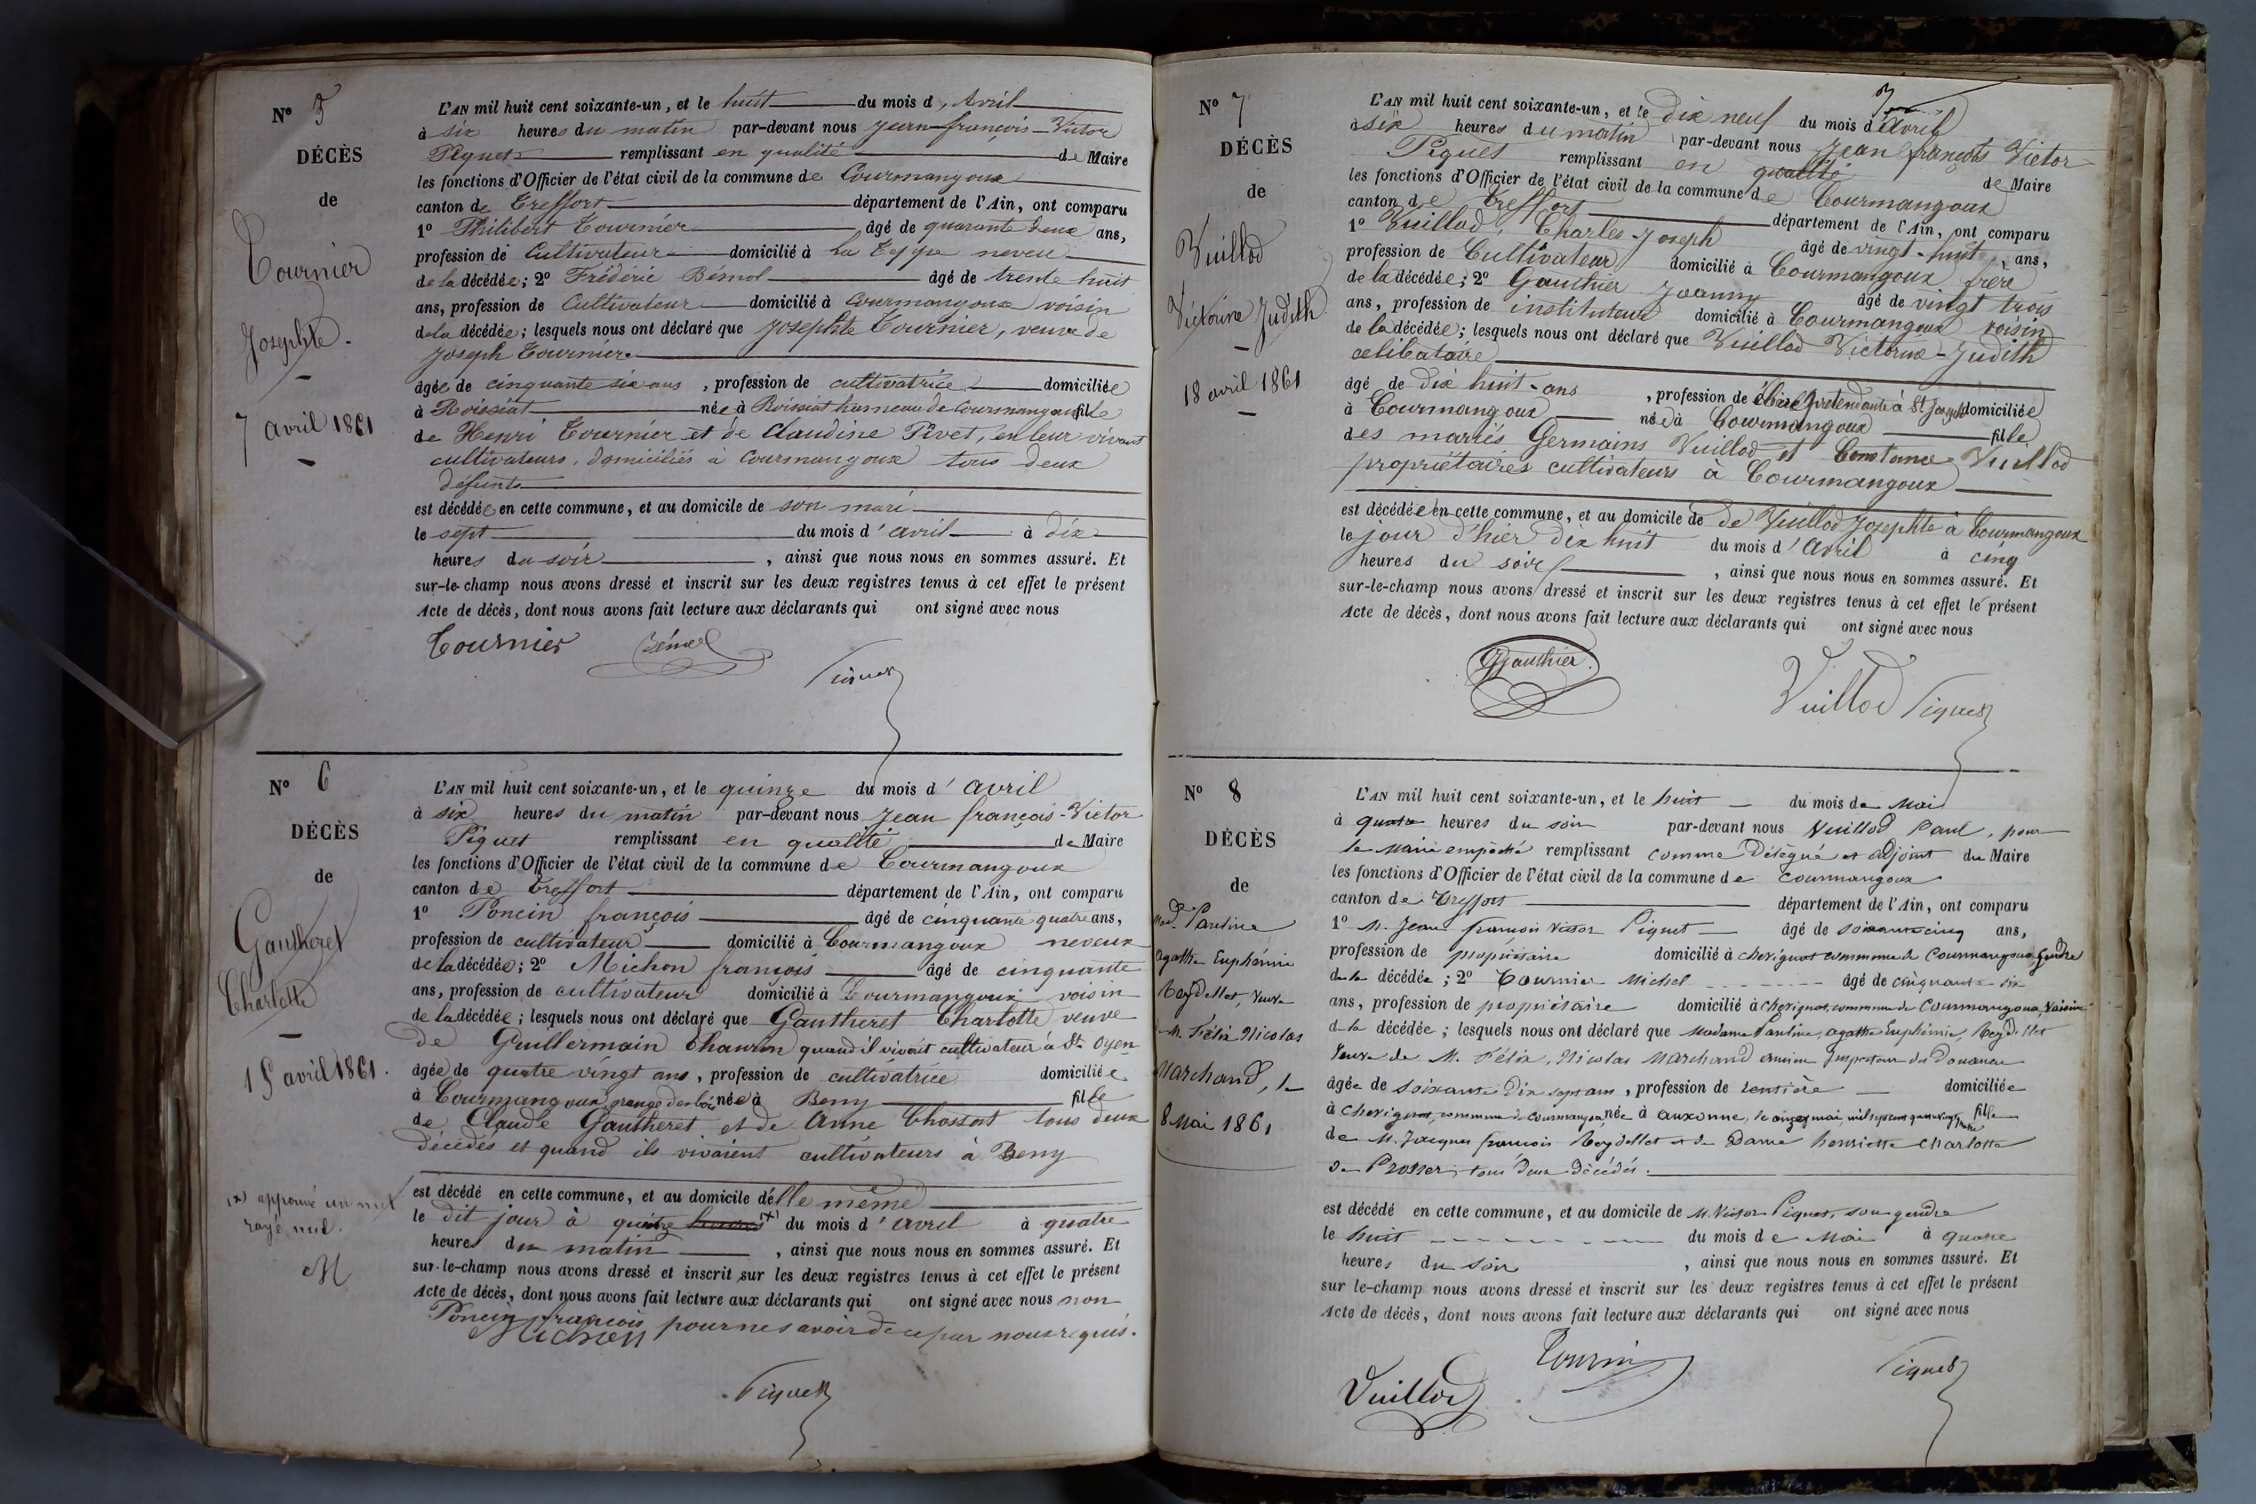 N° 5
DÉCÈS
de
Tournier
Josephte.
7 avril 1861
L'AN mil huit cent soixante-un, et le huit du mois d'Avril
à six heures du matin par-devant nous Jean-françois-Victor
Piquet remplissant en qualité de Maire
les fonctions d'Officier de l'état civil de la commune de Courmangoux
canton de Treffort département de l'Ain, ont comparu
1° Philibert Tournier âgé de quarante deux ans,
profession de Cultivateur domicilié à La Teppe neveu
de la décédée; 2° Frédéric Bémol âgé de trente huit
ans, profession de Cultivateur domicilié à Courmangoux voisin
de la décédée; lesquels nous ont déclaré que Josephte Tournier, veuve de
Joseph Tournier.
âgée de cinquante six ans, profession de cultivatrice domiciliée
à Roissiat née à Roissiat hameau de Courmangoux fille
de Henri Tournier et de Claudine Pivet, en leur vivant
cultivateurs, domiciliés à Courmangoux tous deux
défunts
est décédée en cette commune, et au domicile de son mari
le sept du mois d'avril à dix
heures du soir, ainsi que nous nous en sommes assuré. Et
sur-le-champ nous avons dressé et inscrit sur les deux registres tenus à cet effet le présent
Acte de décès, dont nous avons fait lecture aux déclarants qui ont signé avec nous
Tournier Bémol
Piquet
N° 6
DÉCÈS
de
Gautheret
Charlotte
15 avril 1861.
(x) approuvé un mot
rayé nul.
L'AN mil huit cent soixante-un, et le quinze du mois d'avril
à six heures du matin par-devant nous Jean françois-Victor
Piquet remplissant en qualité de Maire
les fonctions d'Officier de l'état civil de la commune de Courmangoux
canton de Treffort département de l'Ain, ont comparu
1° Poncin françois âgé de cinquante quatre ans,
profession de cultivateur domicilié à Courmangoux neveux
de la décédée; 2° Michon françois âgé de cinquante
ans, profession de cultivateur domicilié à Courmangoux voisin
de la décédée; lesquels nous ont déclaré que Gautheret Charlotte veuve
de Guillermain quand il vivait cultivateur à St Oyen
âgée de quatre vingt ans, profession de cultivatrice domiciliée
à Courmangoux grange des bois née à Beny fille
de Claude Gautheret et de Anne Chossat tous deux
décédés et quand ils vivaient cultivateurs à Beny
est décédé en cette commune, et au domicile d'elle même
le dit jour à quatre heures (x) du mois d'avril à quatre
heures du matin, ainsi que nous nous en sommes assuré. Et
sur-le-champ nous avons dressé et inscrit sur les deux registres tenus à cet effet le présent
Acte de décès, dont nous avons fait lecture aux déclarants qui ont signé avec nous non
Poncin françois pour ne savoir de ce par nous requis.
Michon
Piquet
7
N° 7
DÉCÈS
de
Vuillod
Victoire Judith
18 avril 1861
L'AN mil huit cent soixante-un, et le dix neuf du mois d'avril
à six heures du matin par-devant nous Jean françois Victor
Piquet remplissant en qualité de Maire
les fonctions d'Officier de l'état civil de la commune de Courmangoux
canton de Treffort département de l'Ain, ont comparu
1° Vuillod, Charles-Joseph âgé de vingt-huit ans,
profession de Cultivateur domicilié à Courmangoux frère
de la décédée; 2° Gauthier Joanny âgé de vingt trois
ans, profession de instituteur domicilié à Courmangoux voisin
de la décédée; lesquels nous ont déclaré que Vuillod Victorine-Judith
célibataire
âgé de dix huit-ans, profession de prétendante à St Joseph domiciliée
à Courmangoux née à Courmangoux fille
des mariés Germains Vuillod et Constance Vuillod
propriétaires cultivateurs à Courmangoux
est décédée en cette commune, et au domicile de de Vuillod Josephte à Courmangoux
le jour d'hier dix huit du mois d'avril à cinq
heures du soir, ainsi que nous nous en sommes assuré. Et
sur-le-champ nous avons dressé et inscrit sur les deux registres tenus à cet effet le présent
Acte de décès, dont nous avons fait lecture aux déclarants qui ont signé avec nous
Gauthier
Vuillod Piquet
N° 8
DÉCÈS
de
Mad. Pauline
agathe Euphémie
Reydellet, Veuve
M. Félix Nicolas
Marchand, le
8 Mai 1861
L'AN mil huit cent soixante-un, et le huit du mois de Mai
à quatre heures du soir par-devant nous Vuillod Paul, pour
le Maire empêché remplissant comme Délégué et adjoint du Maire
les fonctions d'Officier de l'état civil de la commune de Courmangoux
canton de Treffort département de l'Ain, ont comparu
1° M. Jean françois Victor Piquet âgé de soixante cinq ans,
profession de propriétaire domicilié à chevignat commune de Courmangoux, Gendre
de la décédée; 2° Tournier Michel âgé de cinquante six
ans, profession de propriétaire domicilié à chevignat, commune de Courmangoux, Voisin
de la décédée; lesquels nous ont déclaré que Madame Pauline, agathe Euphémie, Reydellet
Veuve de M. Félix, Nicolas Marchand ancien Inspecteur des Douanes
âgée de soixante dix sept ans, profession de rentière domiciliée
à chevignat, commune de Courmangoux, née à auxonne, le onze mai mil sept cent quatre vingt fille
de M. Jacques françois Reydellet et de Dame henriette charlotte
de Prosser, tous deux décédés.
est décédé en cette commune, et au domicile de M. Victor Piquet, son gendre
le huit du mois de Mai à quatre
heures du soir, ainsi que nous nous en sommes assuré. Et
sur le-champ nous avons dressé et inscrit sur les deux registres tenus à cet effet le présent
Acte de décès, dont nous avons fait lecture aux déclarants qui ont signé avec nous
Vuillod Piquet